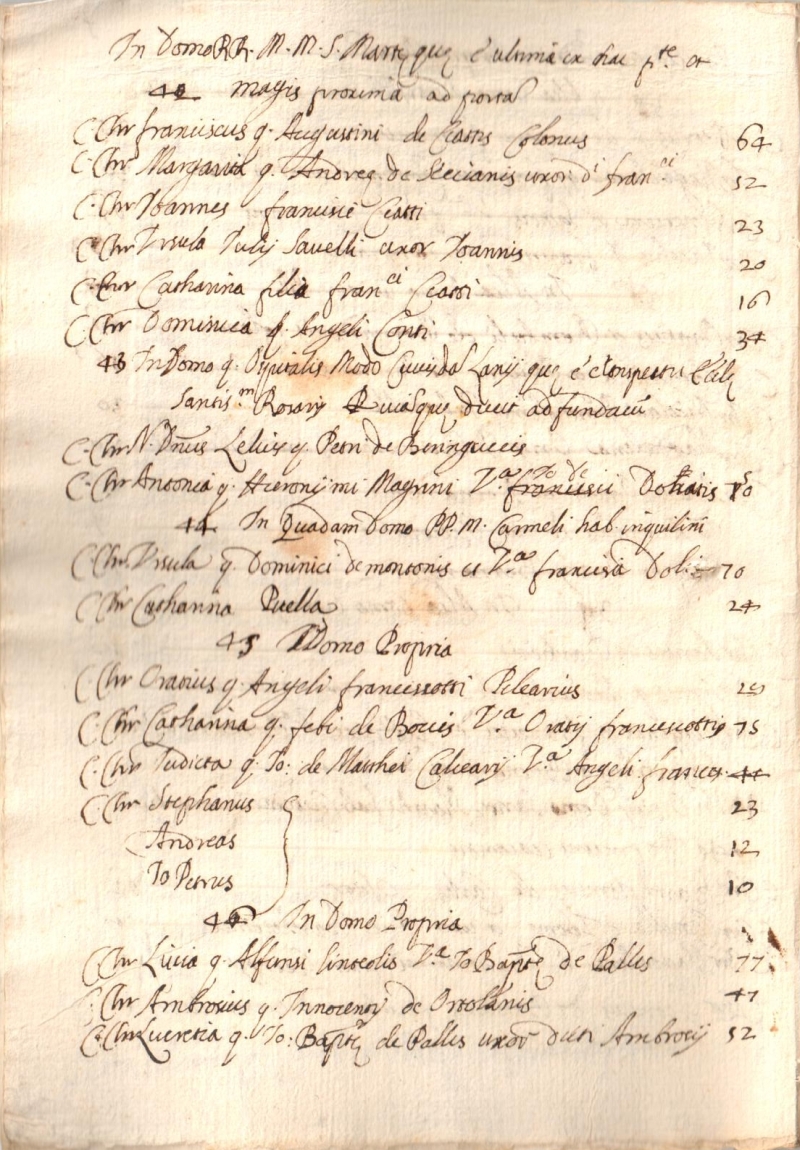 In Domo RR. M. M. S. Martę quę é ultima ex hac p.te et
42 magis proxima ad porta
C. Chr franciscus q. Augustini de Ciattis Colonus 64
C. Chr Margarita q. Andreę de uxor d.i fran.ci 52
C. Chr Ioannes francisci Ciatti 23
C. Chr Vrsula Iulij Savelli uxor Ioannis 20
C. Chr Catharina filia fran.ci Ciatti 16
C. Chr Dominica q. Angeli Conti 34
43 In Domo q. Ospitalis Modo Lanij quę é conspectu Eccl.
Santis.m Rosarij ducit ad fundacu
C. Chr N. Dnus Lelius q. Petri de Beringuccis
C. Chr Antonia q. Hieronijmi Magrini V.a francisci 70
44 In Quadam Domo PP. M. Carmeli hab. inquilini
C. Chr Vrsula q. Dominici de montonis et V.a francisci Doli 70
C. Chr Catharina Puella 24
45 Domo Propria
C. Chr Oratius q. Angeli francescotti Pilearius
C. Chr Catharina q. febi de Boccis V.a Oratij francescottis 75
C. Chr Iudicta q. Io: de Matthei Calcearij V.a Angeli francesc. 44
C. Chr Stephanus 23
Andreas 12
Io Petrus 10
46 In Domo Propria
C. Chr Lucia q. Alfonsi V.a Io Baptę de Pallis 77
C. Chr Ambrosius q. Innocentij de Ortolanis 47
C. Chr Lucretia q. Io: Baptę de Pallis uxor dicti Ambrosij 52